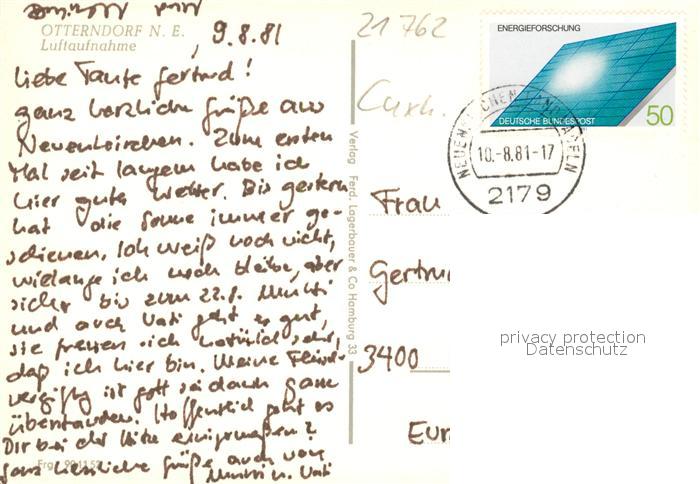 OTTERNDORF N. E.
Luftaufnahme
, 9.8.81
Liebe Tante Gertrud!
ganz herzliche Grüße aus
Neuenkirchen. Zum ersten
Mal seit langem habe ich
hier gutes Wetter. Bis gestern
hat die Sonne immer ge-
schienen. Ich weiß noch nicht,
wielange ich noch bleibe, aber
sicher bis zum 22.8. Mutti
und auch Vati geht es gut,
sie freuen sich natürlich sehr,
daß ich hier bin. Meine
ist Gott sei dank ganz
überstanden. Hoffentlich geht es
Dir bei der Hitze einigermaßen?
Ganz herzliche Grüße auch von
Mutti u. Vati
Verlag Ferd. Lagerbauer & Co Hamburg 33
21 762
Cuxh.
ENERGIEFORSCHUNG
DEUTSCHE BUNDESPOST
50
10.-8.81-17
2179
Frau
Gertru
3400
Eur
privacy protection
Datenschutz